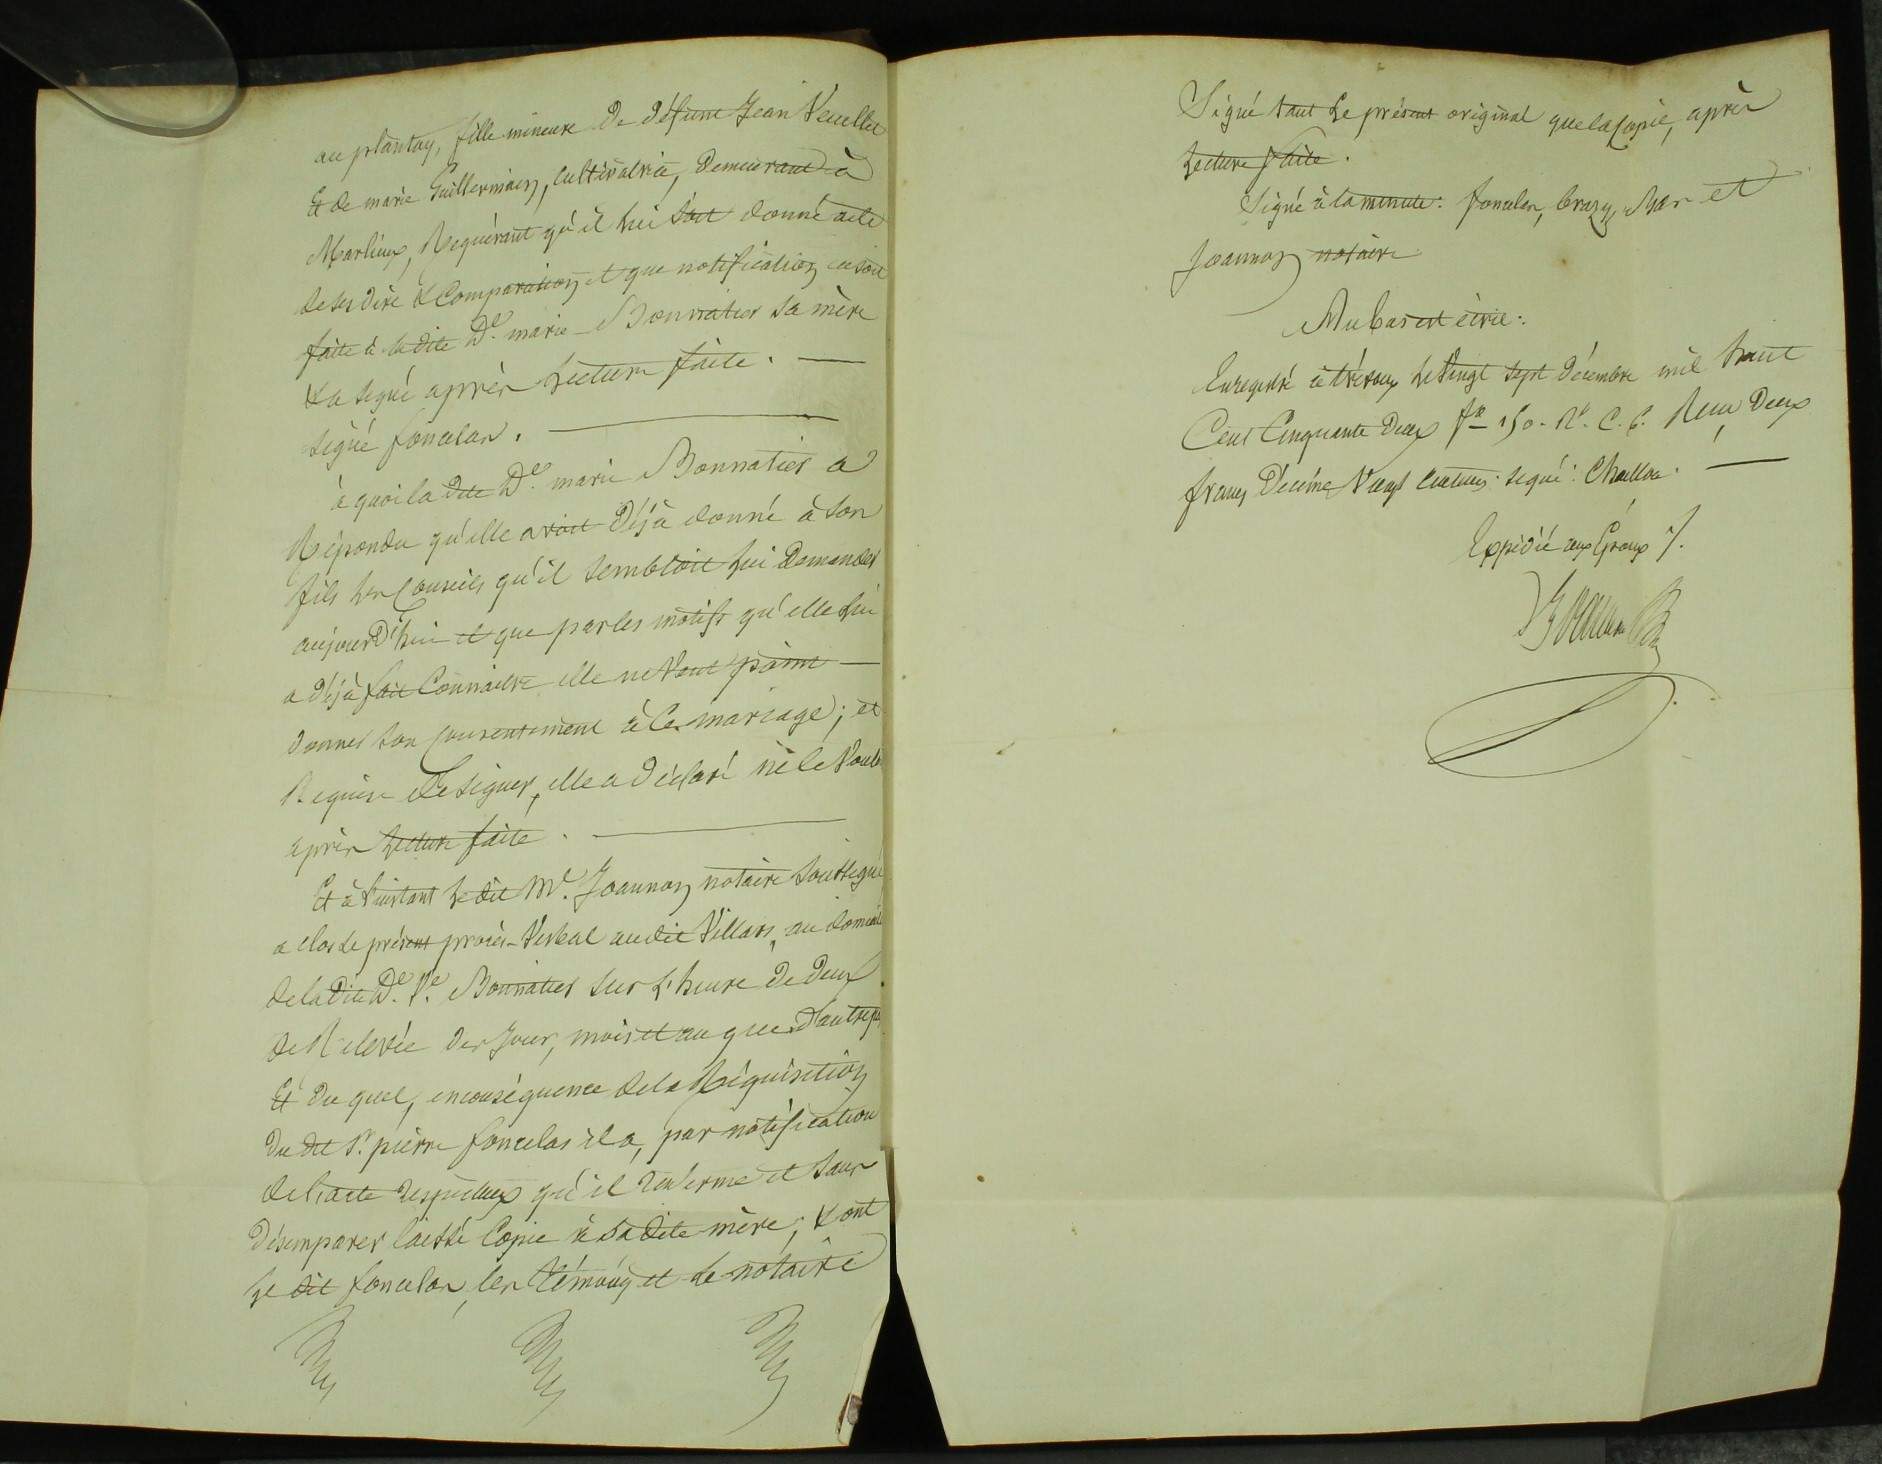 au plantay, fille mineure de défunt Jean Veuillet
Et de marie Guillermain, cultivatrice, demeurant à
Marlieux, Requérant qu'il lui soit donné acte
de ses dire & Comparution et que notification en soit
faite à la dite De. marie Bonnatier sa mère
& a signé après Lecture faite. —
signé foncelas. —
à quoi la dite De. marie Bonnatier a
Répondu qu'elle avait déjà donné à son
fils les Conseils qu'il semblait lui demander
aujourd'hui et que par les motifs qu'elle lui
a déjà fait Connaître elle ne veut point —
donner son Consentement à ce mariage; et
Requise de signer, elle a déclaré ne le vouloir
après Lecture faite. —
Et à l'instant Le dit Me. Joannon notaire soussigné
a clos le présent procès-Verbal au dit Villars, au domicile
de la dite De. Ve. Bonnatier sur L'heure de deux
de Relevée des jour, mois et an que d'autre part
Et du quel, en conséquence de la Réquisition
du dit Sr. pierre foncelas il a, par notification
de l'acte respectueux qu'il renferme et sans
désemparer laissé Copie à sa dite mère; & ont
Le dit foncelas, les témoins et le notaire
Signé tant Le présent original que la Copie, après
Lecture faite.
Signé à la minute: foncelas, Crazy, et
Joannon notaire
Au bas est écrit:
Enregistré à trévoux Le Vingt sept décembre mil huit
Cent Cinquante deux fo 150. Ro. C. 6. Reçu deux
francs Décime Vingt centimes. signé: —
Expédié aux Epoux %.